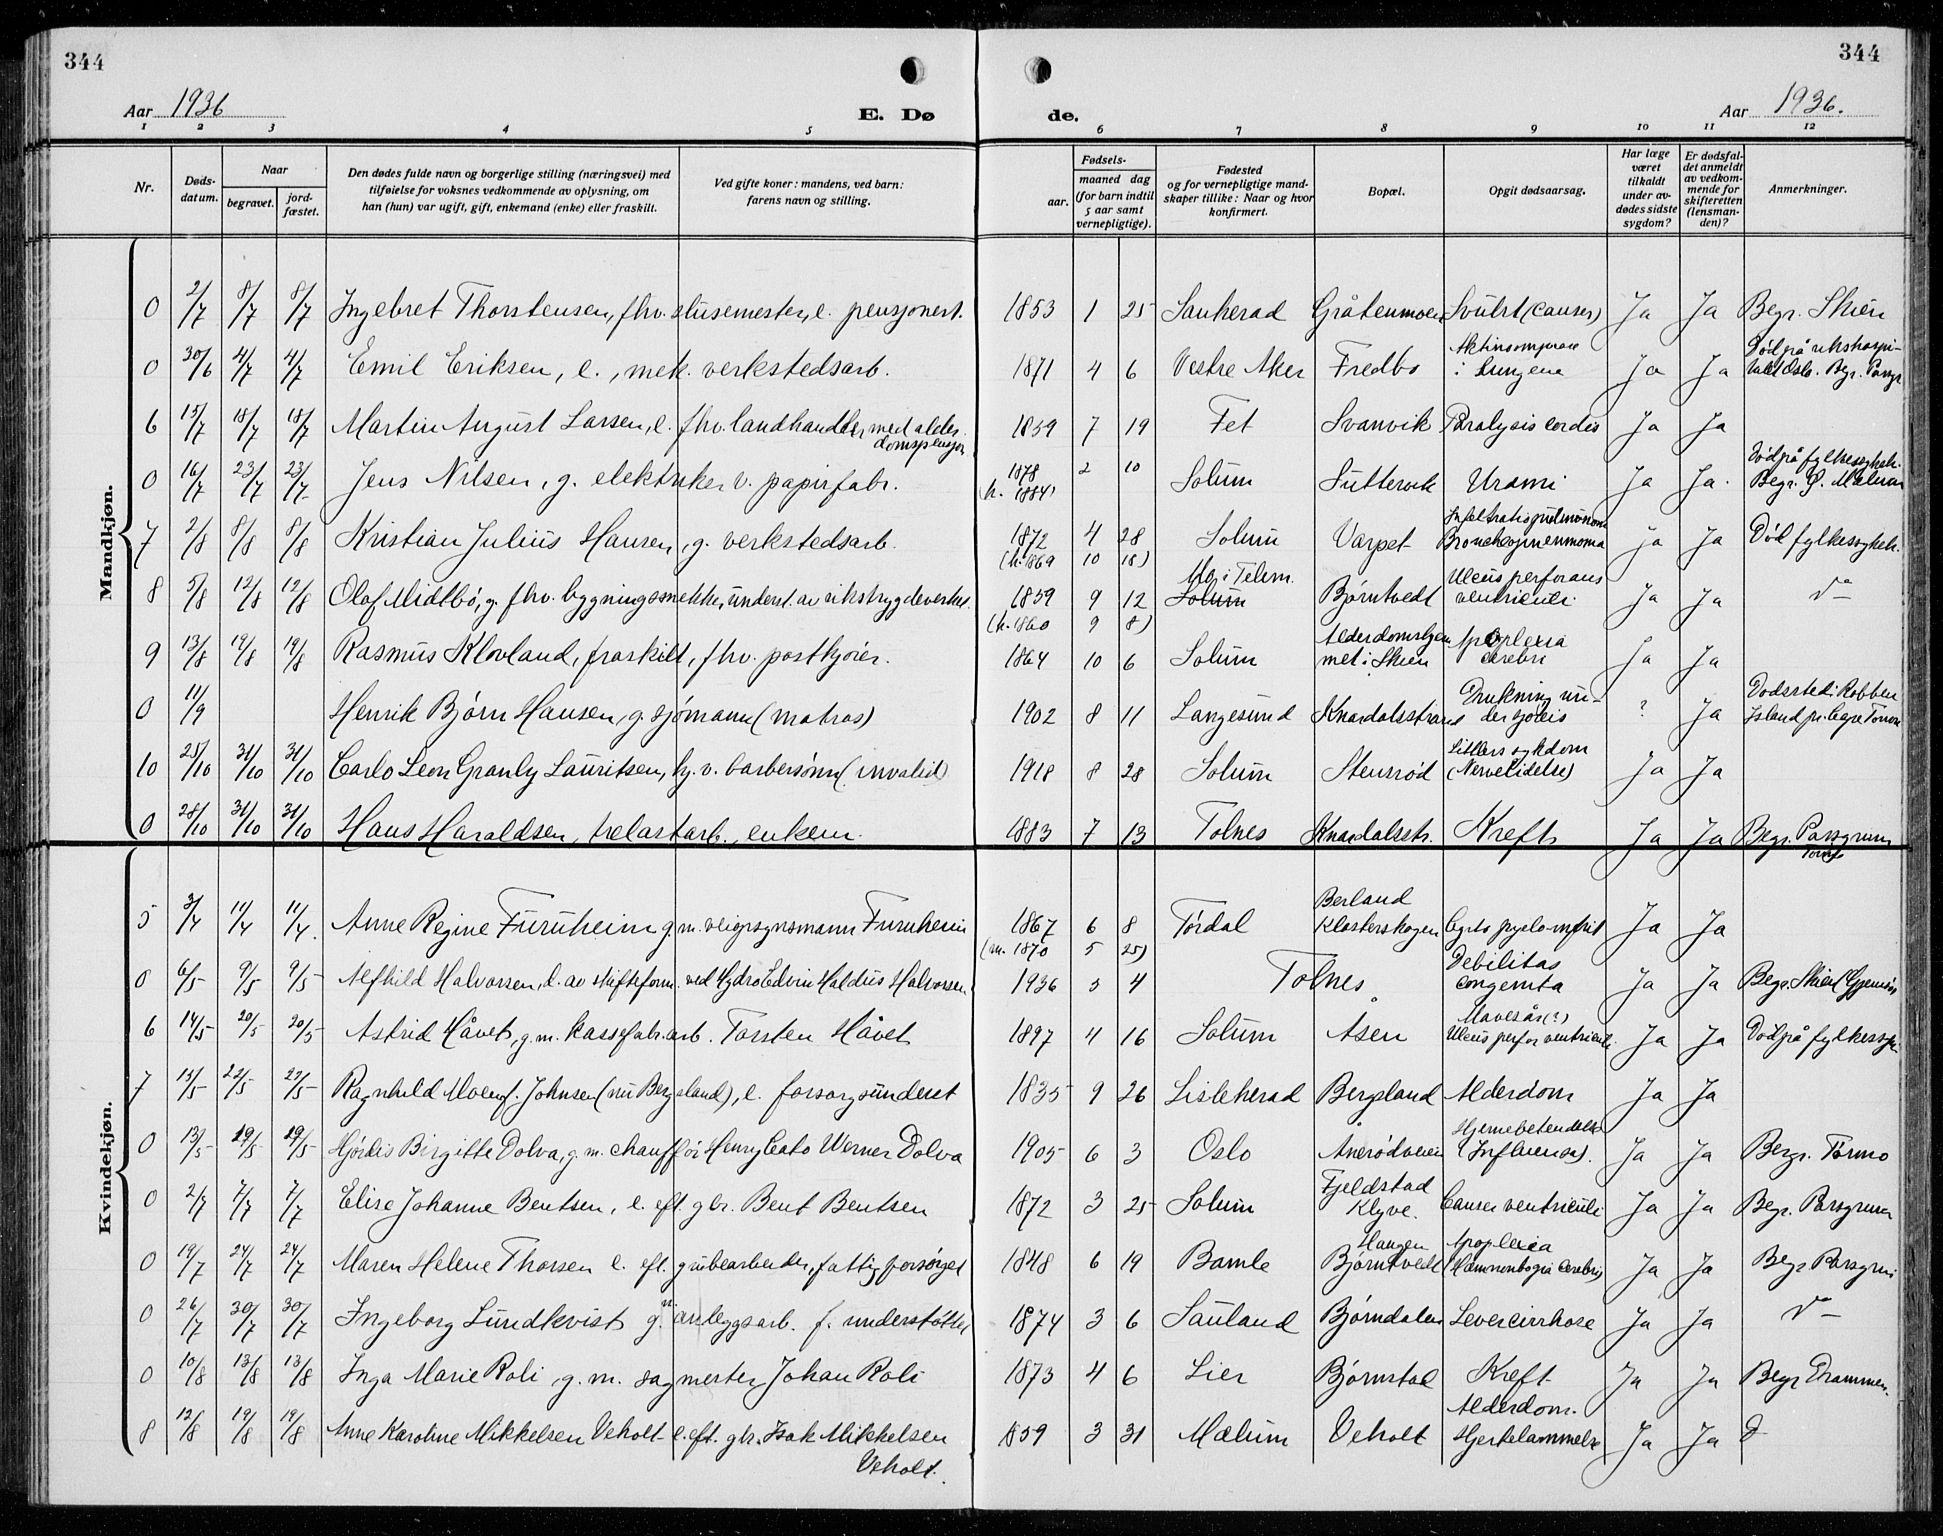 344
344
Aar 1936
E. Dø
de.
Aar 1936.
1 2 3 4 5 6 7 8 9 10 11 12
Nr.
Døds-
datum.
Naar
begravet.
jord-
fæstet.
Den dødes fulde navn og borgerlige stilling (næringsvei) med
tilføielse for voksnes vedkommende av oplysning, om
han (hun) var ugift, gift, enkemand (enke) eller fraskilt.
Ved gifte koner: mandens, ved barn:
farens navn og stilling.
Fødsels-
aar.
maaned dag
(for barn indtil
5 aar samt
vernepligtige).
Fødested
og for vernepligtige mand-
skaper tillike: Naar og hvor
konfirmert.
Bopæl.
Opgit dødsaarsag.
Har læge
været
tilkaldt
under av-
dødes sidste
sygdom?
Er dødsfal-
det anmeldt
av vedkom-
mende for
skifteretten
(lensman-
den)?
Anmerkninger.
Mandkjøn.
0 2/7 8/7 8/7 Ingebret Thorstensen, fhv. slusemester, e. pensjonert. 1853 1 25 Sauherad Gråtenmoen Svulst (cancer) Ja Ja Begr. Skien
0 30/6 4/7 4/7 Emil Eriksen, e., mek. verkstedsarb. 1871 4 6 Vestre Aker Fredbo i lungene Ja Ja Død på rikshospi-
talet Oslo. Begr. Porsgr
6 15/7 18/7 18/7 Martin August Larsen, e. fhv. landhandler, med alder-
domspensjon 1859 7 19 Fet Svanvik Paralysis cordis Ja Ja
0 16/7 23/7 23/7 Jens Nilsen, g. elektriker v. papirfabr. 1878 2 10 Solum Suttervik Urämi Ja Ja. Død på fylkessykeh.
(h. 1884) Begr. Ø. Mælum
7 2/8 8/8 8/8 Kristian Julius Hansen, g. verkstedsarb. 1872 4 28 Solum Varpet Bronchopneumonia ja Ja Død fylkessykeh.
(h. 1869 10 18)
8 5/8 12/8 12/8 Olaf Midtbø, g. fhv. bygningssnekker, underst. av rikstrygdeverket. 1859 9 12 Mo i Telem. Solum Bjørntvedt Ulcus perforans
ventriculi. Ja Ja do
(h. 1860 9 8)
9 13/8 19/8 19/8 Rasmus Klovland, fraskilt, fhv. postkjører. 1864 10 6 Solum Alderdomshjem
met i Skien Apoplexia
cerebri Ja Ja
0 11/9 Henrik Bjørn Hansen, g. sjømann (matros) 1902 8 11 Langesund Knardalsstrand Drukning un-
der sjøreis ? Ja Dødssted: Robben
Island
10 25/10 31/10 31/10 Carlo Leon Granly Lauritsen, hj. v. barbersønn (invalid) 1918 8 28 Solum Stensrød Littlers sykdom
(Nervelidelse) Ja Ja
0 28/10 31/10 31/10 Hans Haraldsen, trelastarb., enkem. 1883 7 13 Tolnes Knardalsstr. Kreft Ja Ja Begr. Porsgrunn
Kvindekjøn.
5 3/4 11/4 11/4. Anne Regine Furuheim g. m. veiopsynsmann Furuheim 1867 6 8 Tørdal Berland
Klosterskogen Ja Ja
(m. 1870 5 25)
0 6/5 9/5 9/5 Alfhild Halvorsen, d. av skiftform. ved Hydro Edvin Haldius Halvorsen 1936 3 4 Tolnes Debilitas
congenita Ja Ja Begr. Skien (Gjemsø)
6 14/5 20/5 20/5 Astrid Håvet, g. m. kassefabr. arb. Torsten Håvet 1897 4 16 Solum Åsen Mavesår (?)
Ulcus perfor ventriculi. Ja Ja Død på fylkessyk.
7 15/5 22/5 22/5 Ragnhild Moen f. Johnsen (nu Bergsland), e. forsorgsunderst 1835 9 26 Lisleherad Bergsland Alderdom Ja Ja
0 13/5 29/5 29/5 Hjørdis Birgitte Dolva, g. m. chauffør Henry Cato Werner Dolva 1905 6 3 Oslo Ånerødveien Hjernebetendelse
(Influensa). Ja Ja Begr. Tørmo
0 2/7 7/7 7/7 Elise Johanne Bentsen, e. eft. gbr. Bent Bentsen 1872 3 25 Solum Fjeldstad
Klyve. Cancer ventriculi Ja Ja Begr. Porsgrunn
0 19/7 24/7 24/7 Maren Helene Thorsen e. eft. grubearbeider, fattigforsørget 1848 6 19 Bamle Haugen
Bjørntvedt Apoplexia
Hæmorrhagia cerebri Ja Ja Begr Porsgrun
0 26/7 30/7 30/7 Ingeborg Lundkvist g. m. anleggsarb. f. understøttet 1874 3 6 Sauland Bjørndalen Levercirrhose Ja Ja do
0 10/8 13/8 13/8 Inga Marie Roli, g. m. sagmester Johan Roli 1873 4 6 Lier Bjørnstad Kreft Ja Ja Begr Drammen.
8 12/8 19/8 19/8 Anne Karoline Mikkelsen Veholt e. eft. gbr. Isak Mikkelsen
Veholt. 1859 3 31 Mælum Veholt Alderdom.
Hjertelammelse Ja Ja